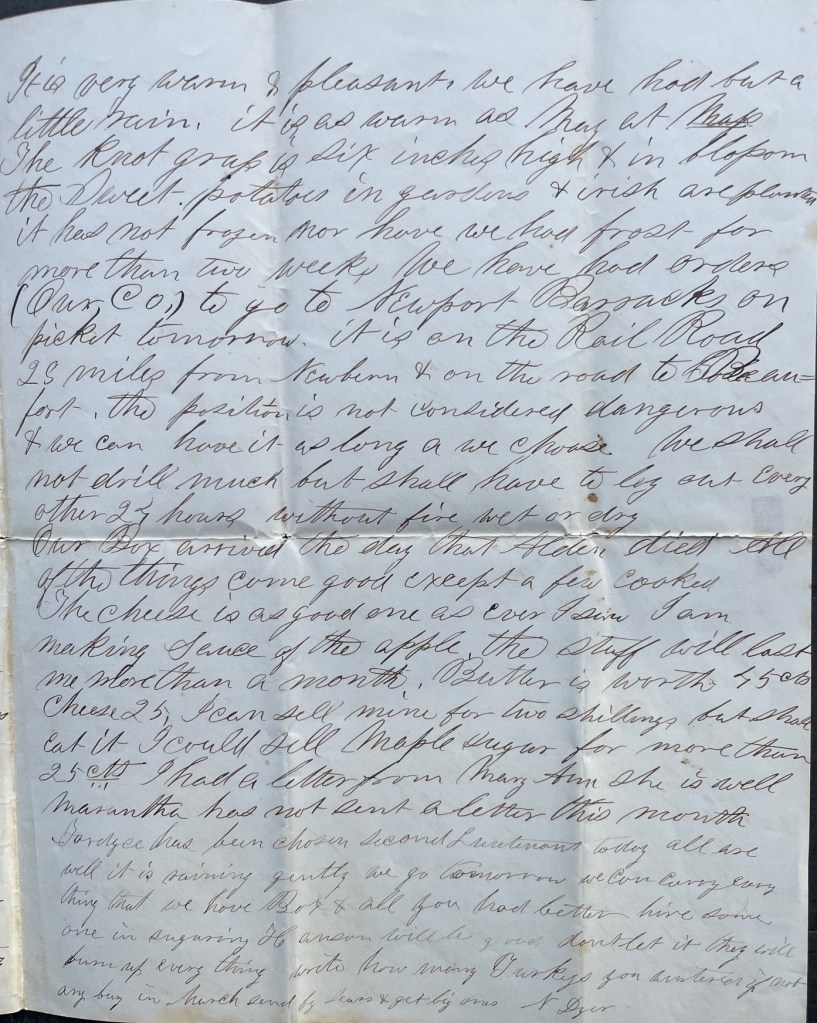 It is very warm & pleasant, we have had but a
little rain. it is as warm as May at
The Knot grass is six inches high & in blossom
the Sweet. potatoes in gardens & irish are planted
it has not frozen nor have we had frost for
more than two weeks, We have had orders
(Our, Co,) to go to Newport Barracks on
picket tomorrow. it is on the Rail Road
23 miles from Newbern & on the road to Beau=
fort, the position is not considered dangerous
& we can have it as long a we choose We shall
not drill much but shall have to lay out every
other 24 hours without fire, wet or dry
Our Box arrived the day that Alden died All
of the things come good except a few cooked
The cheese is as good one as ever I saw I am
making Sauce of the apple, the stuff will last
me more than a month, Butter is worth 45 cts
Cheese 25, I can sell mine for two shillings but shall
eat it I could sell Maple sugar for more than
25 cts I had a letter from Mary Ann she is well
Marantha has not sent a letter this month
Fordyce has been chosen second Lieutenant today all are
well it is raining gently we go tomorrow we can carry every
thing that we have Box & all you had better hire some
one in sugaring Hanson will be good dont let it they will
burn up every thing write how many Turkeys you wintered if not
any buy in March send by Sears & get big ones N Dyer